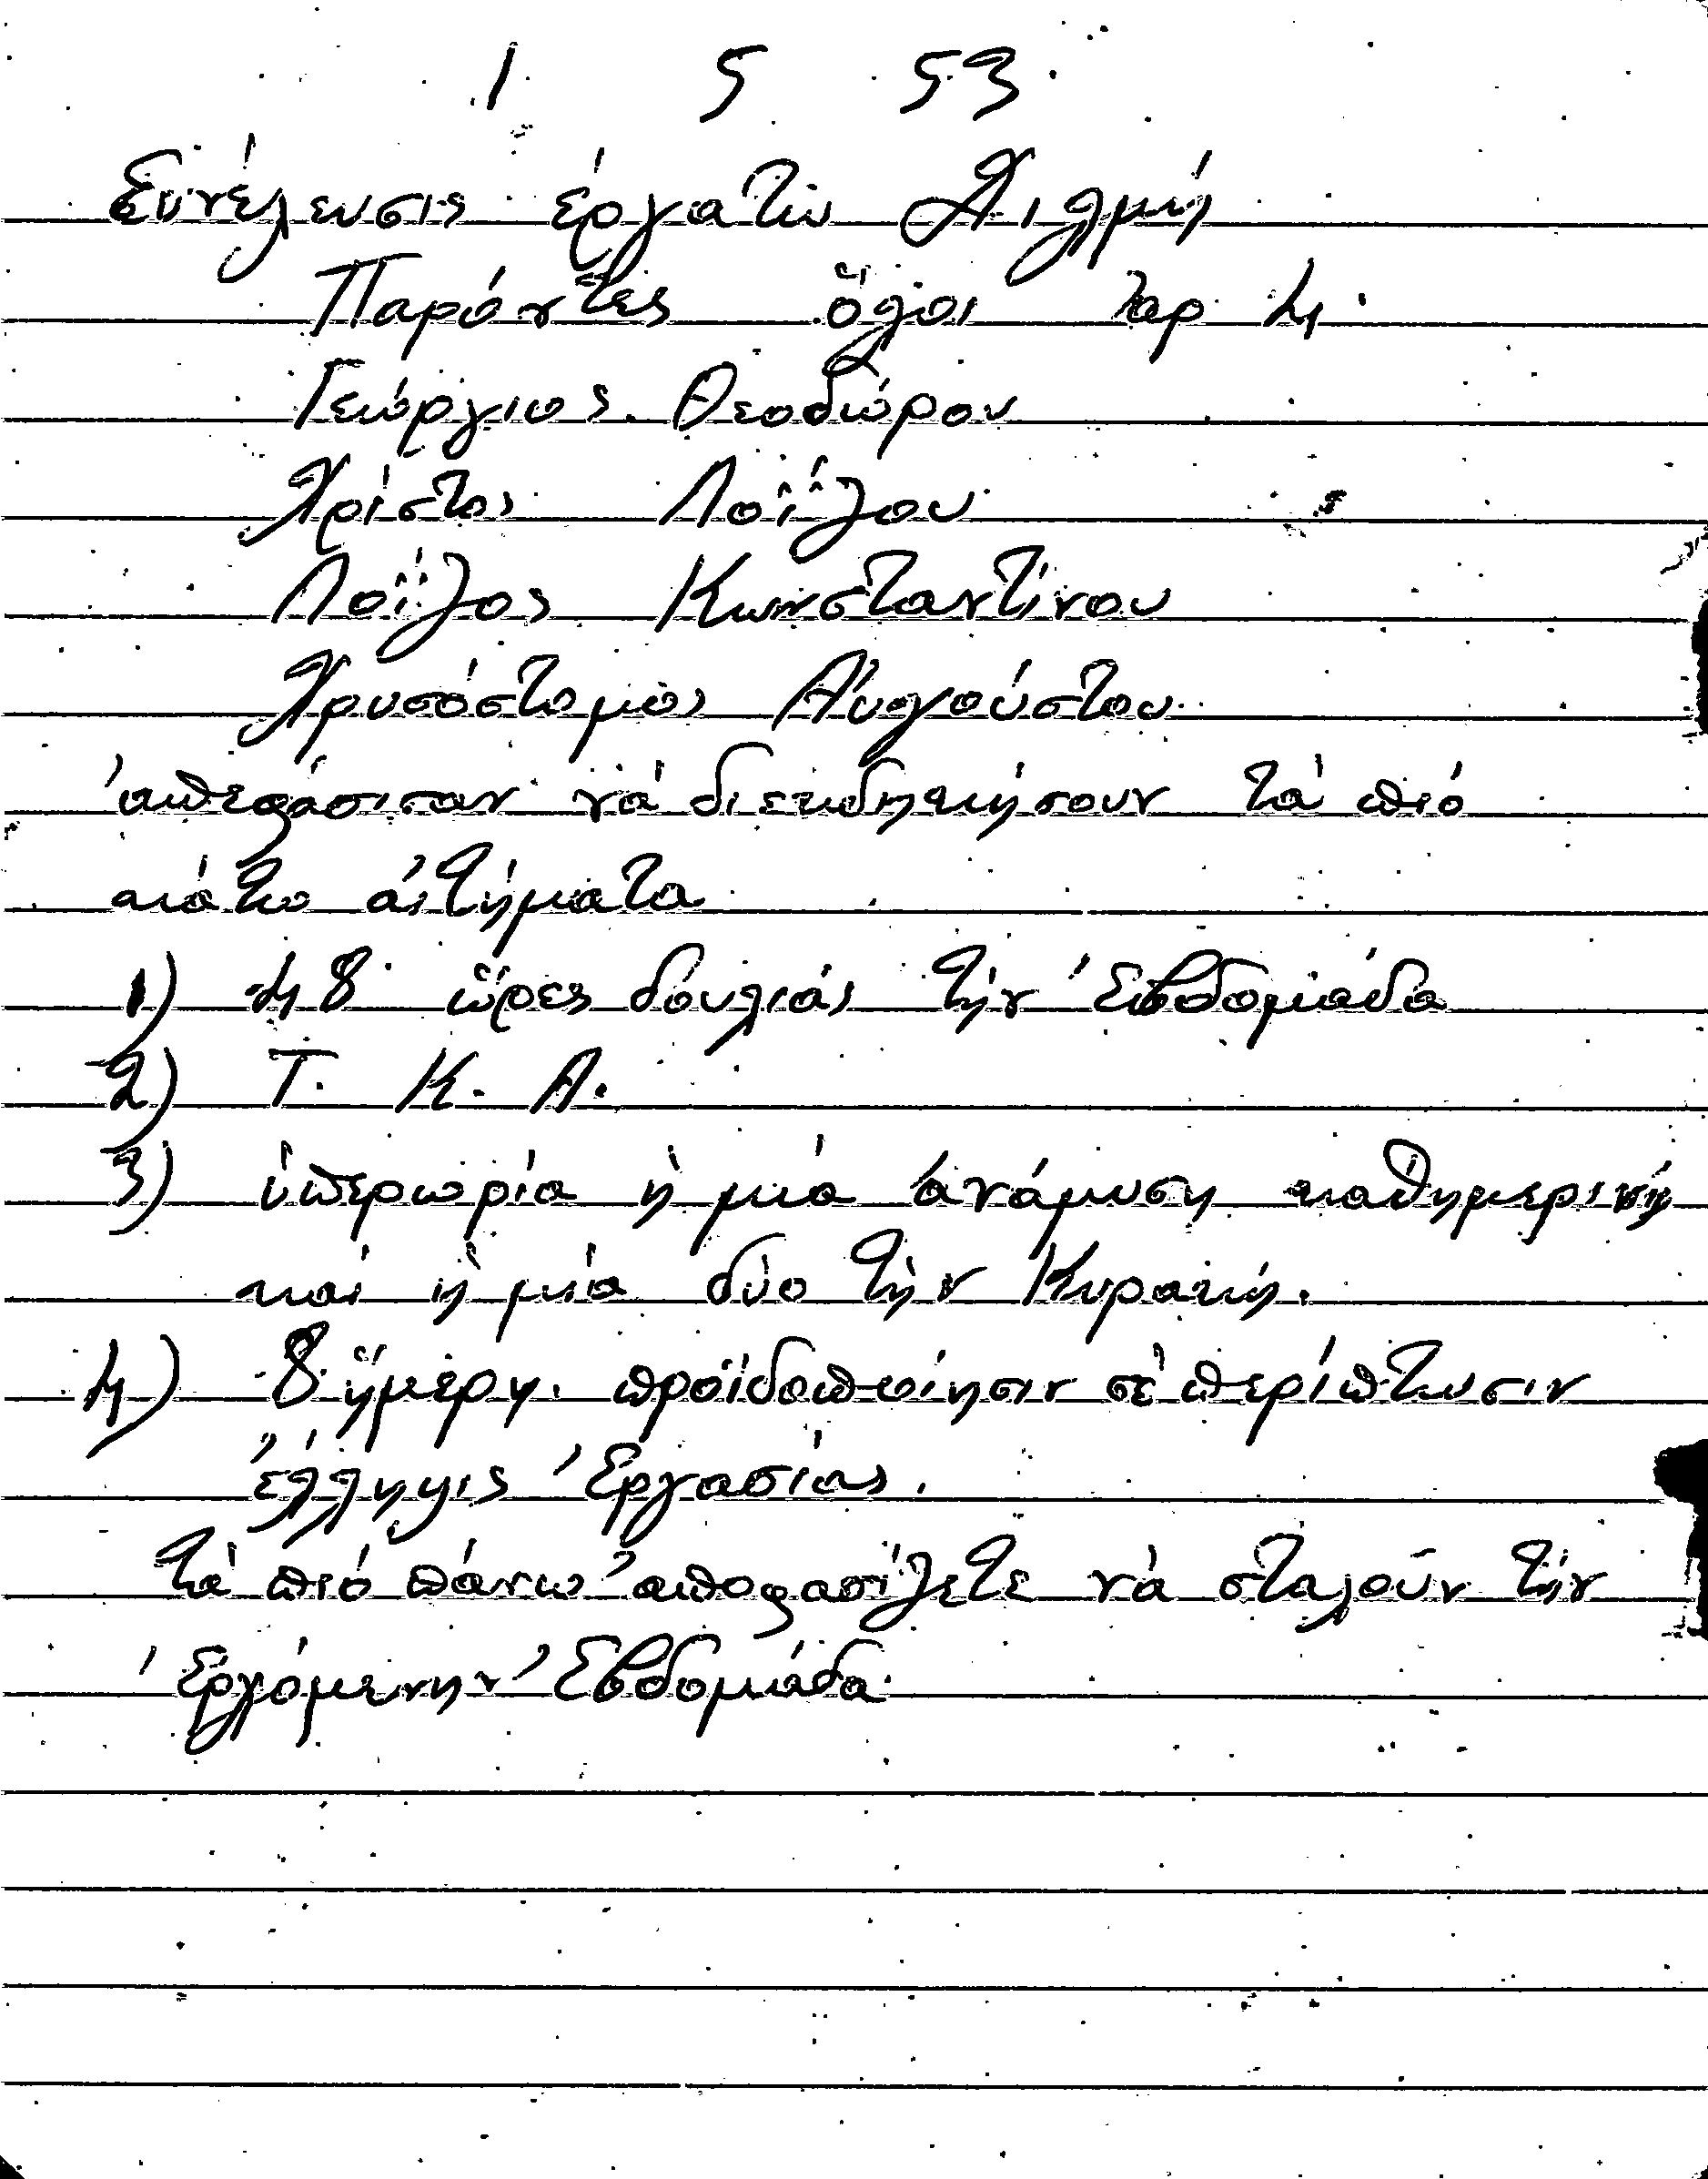 1 5 53
Συνέλευσις ἐργατῶν Χιλμή
Παρόντες ὅλοι 4.
Γεώργιος Θεοδώρου
Χρίστος Λοΐζου
Λοΐζος Κωνσταντίνου
Χρυσόστομος Αὐγούστου
ἀπεφάσισαν νά διεκδηκήσουν τά πιό
κάτω αἰτήματα
1) 48 ὥρες δουλιάς τήν Ἑβδομάδα
2) Τ. Κ. Α.
3) ὑπερωρία ἡ μιά ἀνάμυση καθημερινή
καί ἡ μία δύο τήν Κυρακή.
4) 8 ἥμερη. προϊδοποίησιν σέ περίπτωσιν
ἐλλήψις Ἐργασίας.
τά πιό πάνω ἀποφασίζετε νά σταλοῦν τήν
Ἐρχόμενην Ἑβδομάδα